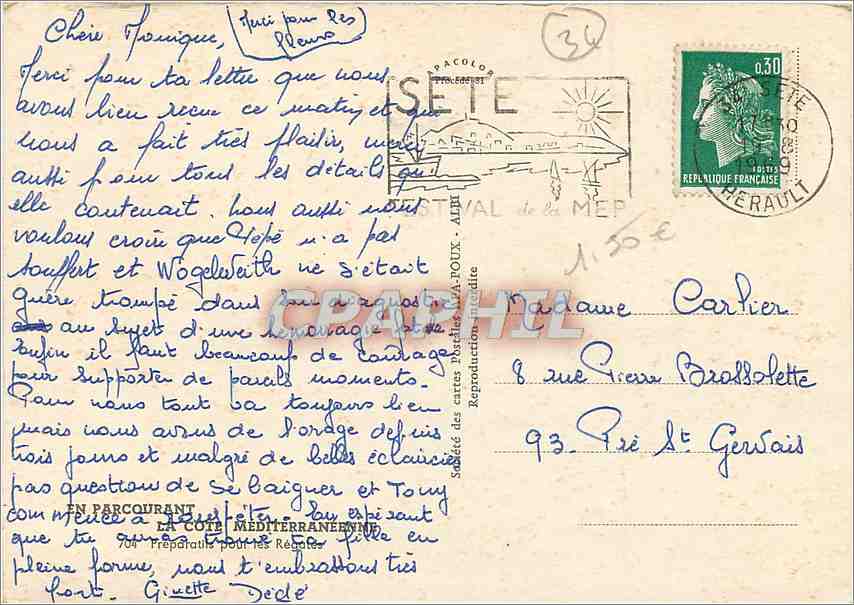 Chère Monique,
Merci pour les
fleurs
Merci pour ta lettre que nous
avons bien reçue ce matin et qui
nous a fait très plaisir, merci
aussi pour tous les détails qu'
elle contenait. Nous aussi nous
voulons croire que Pépé n'a pas
souffert et Wogelweith ne s'était
guère trompé dans son diagnostic
au sujet d'une hémorragie
Enfin il faut beaucoup de courage
pour supporter de pareils moments.
Pour nous tout va toujours bien
mais nous avons de l'orage depuis
trois jours et malgré de belles éclaircies
pas question de se baigner et Tony
commence à rouspéter. En espérant
que tu auras trouvé ta fille en
pleine forme, nous t'embrassons très
fort. Ginette Dédé
EN PARCOURANT
LA COTE MÉDITERRANÉENNE
704 Préparatifs pour les Régates
34
APACOLOR
Procédé 81
SÈTE
FESTIVAL de la MER
0,30
RÉPUBLIQUE FRANÇAISE
34 SÈTE
1969
HÉRAULT
1.50 €
Société des cartes Postales APA-POUX - ALBI
Reproduction interdite
CPAPHIL
Madame Carlier
8 rue Pierre Brossolette
93. Pré St Gervais